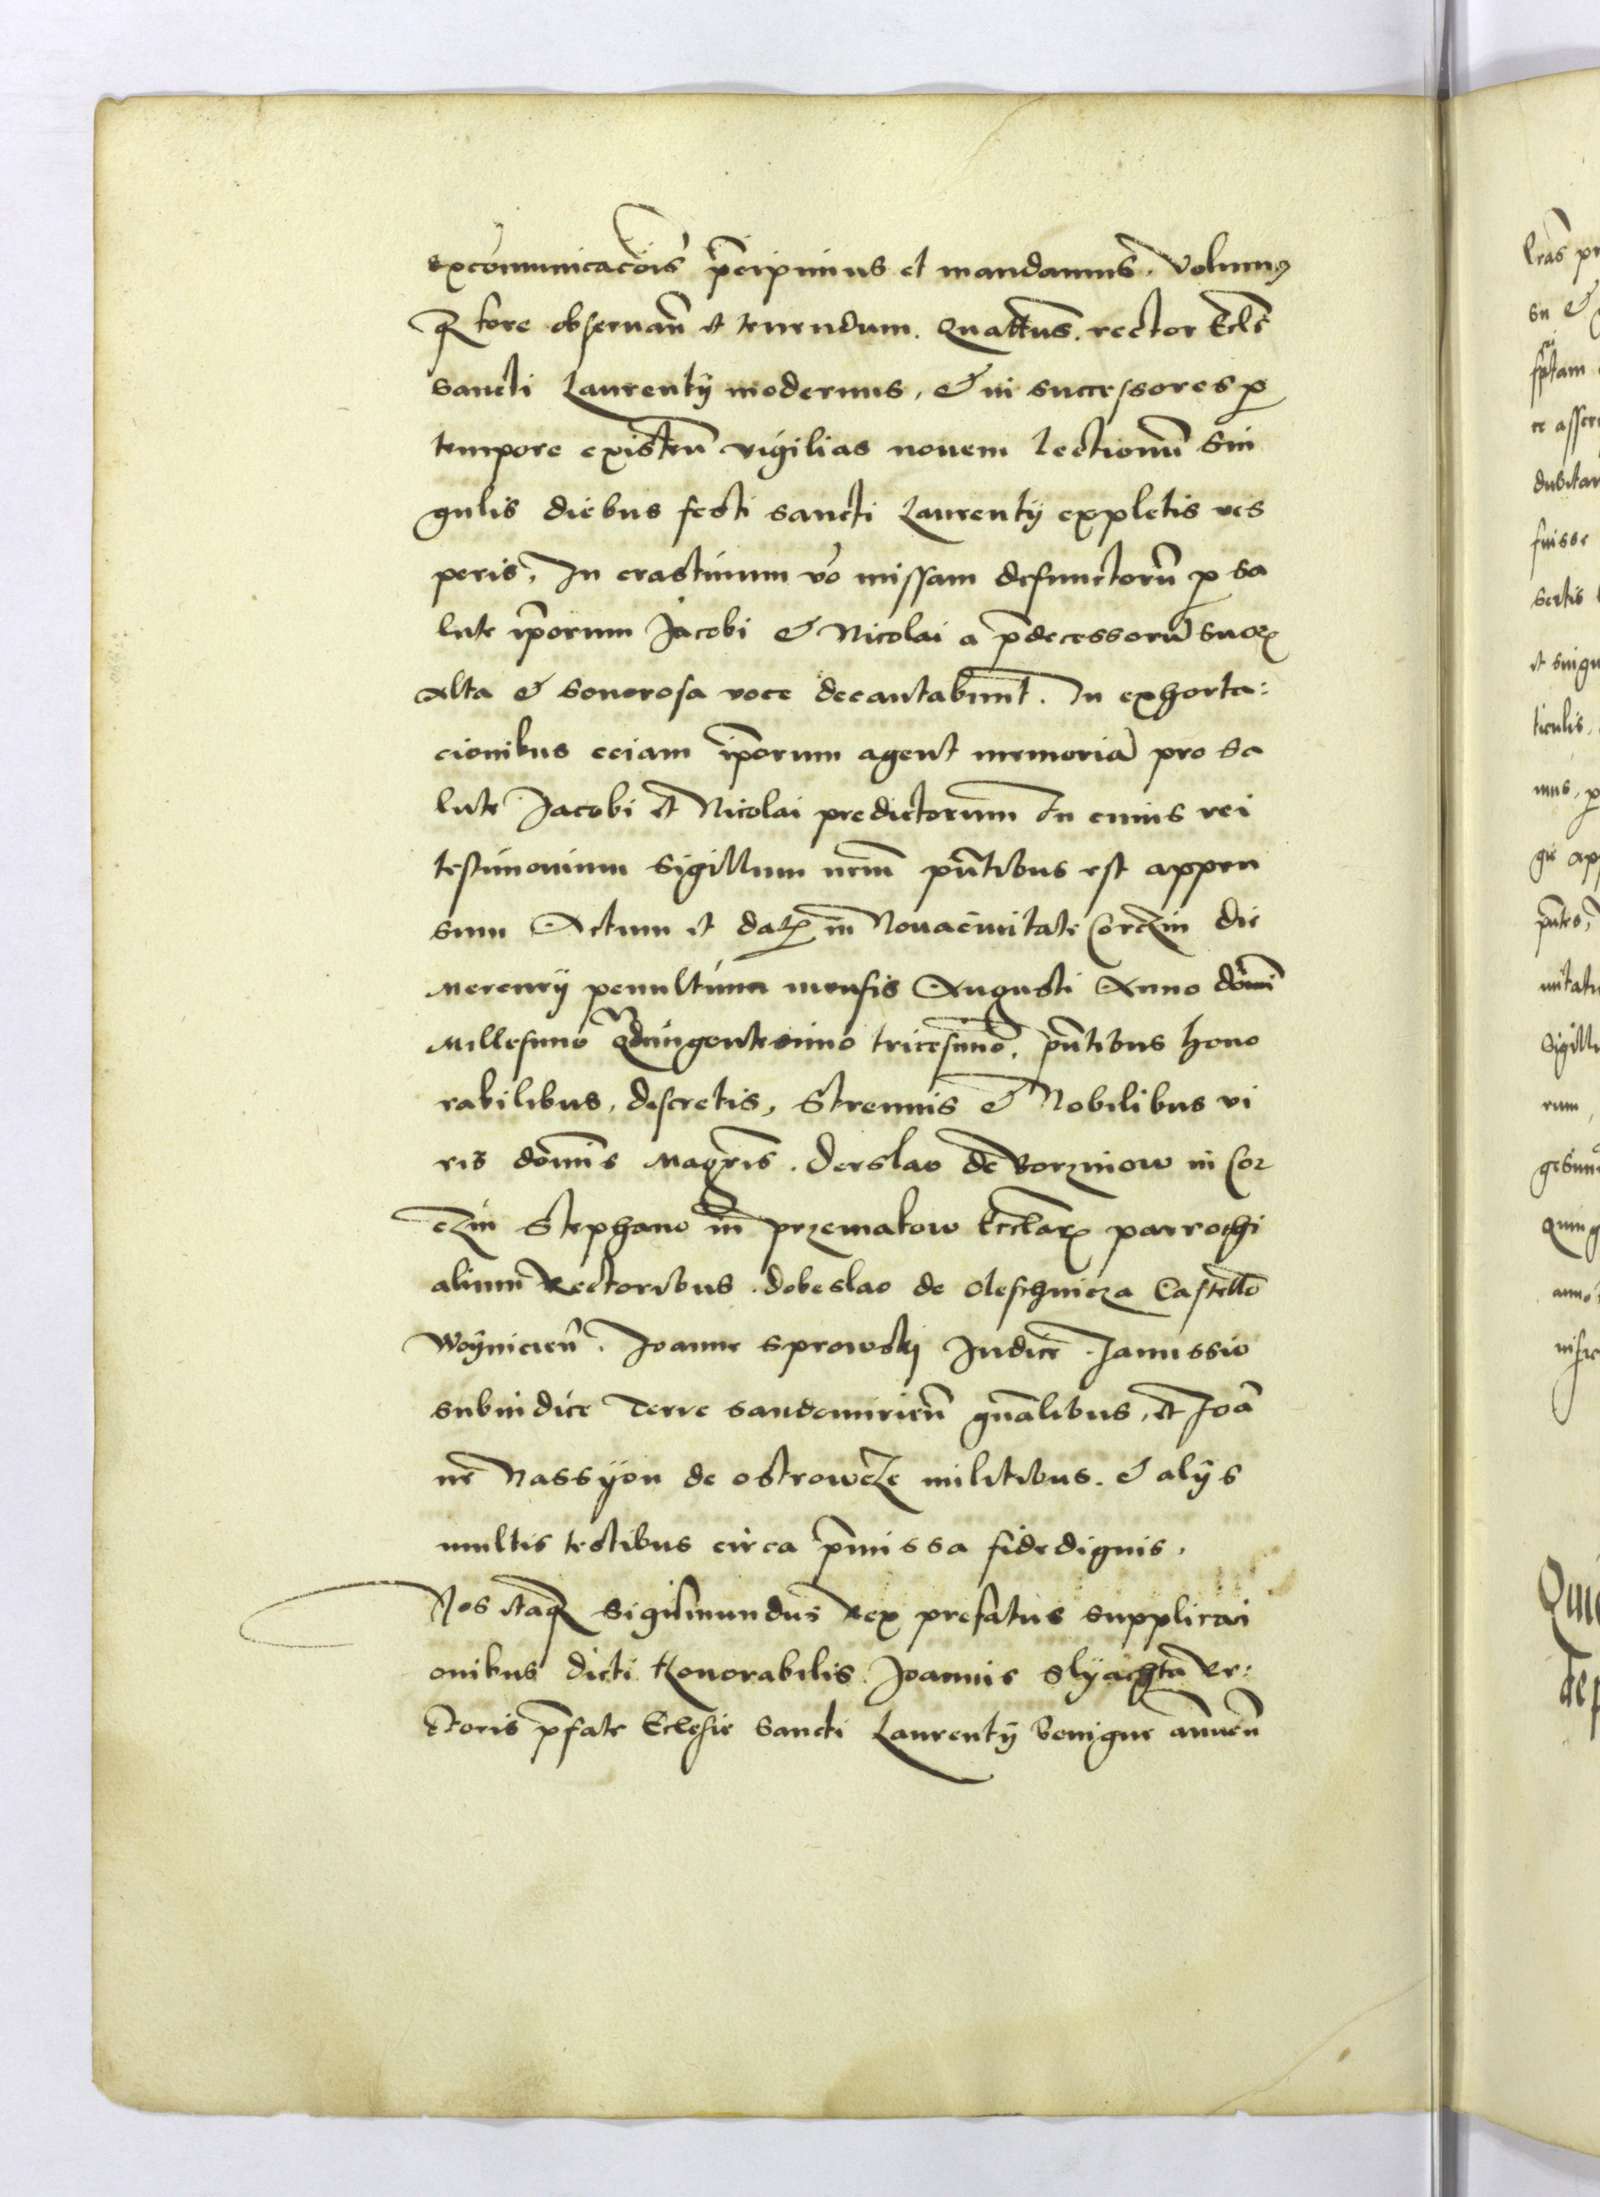 excomunicacōis p̄cipimus et mandamus. Volumꝰ
fore obseruan̄ et tenendum. Quat̄tus rector Eccl̄e
Sancti Laurentij modernus, & in successores ꝓ
tempore existen̄ vigilias nouem lectionū Sin
gulis diebus festi sancti Laurentij expletis ves
peris, In crastinum v̄o missam defunctorū ꝓ sa
lute ip̄orum Jacobi & Nicolai a p̄decessorū suoꝝ
Alta & sonorosa voce decantabunt. In exhorta:
cionibus eciam ip̄orum agent memoriā pro sa
lute Jacobi et Nicolai predictorum In cuius rei
testimonium Sigillum nr̄m pn̄tibus est appen
sum Actum et datꝝ in Nouaciuitate Corczin die
Mercurij penultima mensis Augusti Anno domī
Millesimo Qdringentesimo tricesimo, pn̄tibus hono
rabilibus, discretis, Strennis & Nobilibus vi
ris domīs Magr̄is. Derslao de Borzinow in Cor
czin Stephano in Przemakow Eccl̄iaꝝ parrochi
alium Rectoribus. Dobeslao de Oleschnicza Castell̄o
Woynicien̄. Joanne Sprowskj Judice. Janussio
subiudice Terre Sandomirien̄ gn̄alibus, et Joā
ne Nassyon de ostrowcze militibus. & alijs
multis testibus circa p̄missa fidedignis.
Nos itaqꝫ Sigismundus Rex prefatus supplicaci
onibus dicti Honorabilis Joannis Slyachta Re:
ctoris p̄fate Ecclesie Sancti Laurentij benigne annuen̄